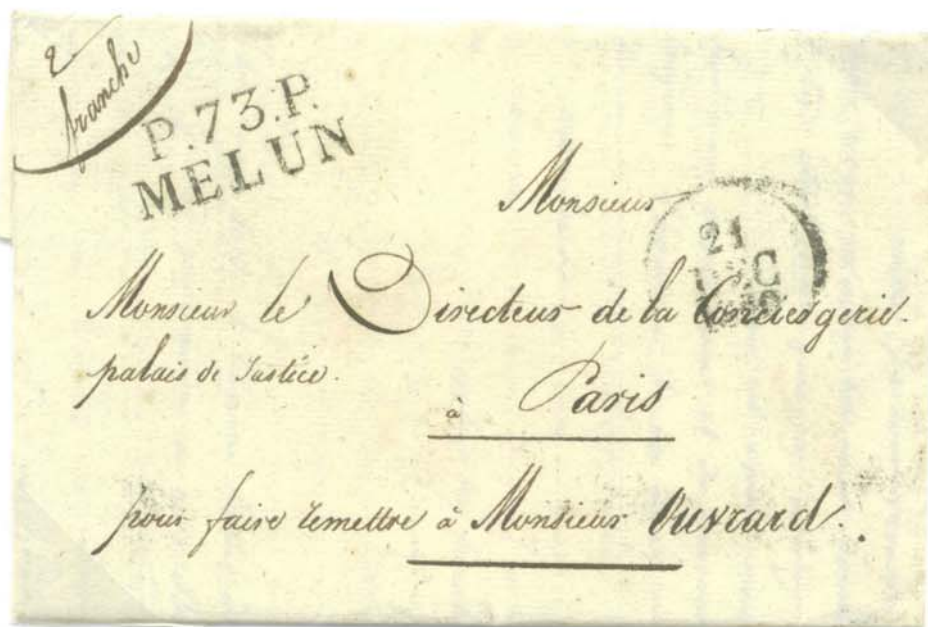 franche
P.73.P.
MELUN
Monsieur
21
Monsieur le Directeur de la Conciergerie.
palais de Justice.
à Paris
pour faire remettre à Monsieur Ouvrard.